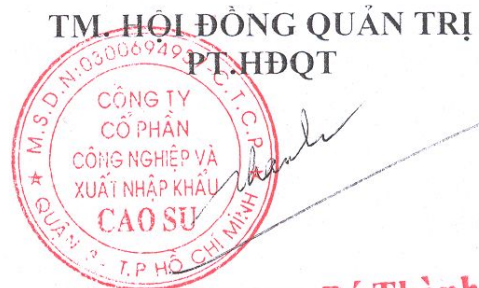 TM. HỘI ĐỒNG QUẢN TRỊ
PT.HĐQT
M.S.D.N:030069495 C.T.C.P
CÔNG TY
CỔ PHẦN
CÔNG NGHIỆP VÀ
XUẤT NHẬP KHẨU
CAO SU
QUẬN 3 - T.P HỒ CHÍ MINH
Thành